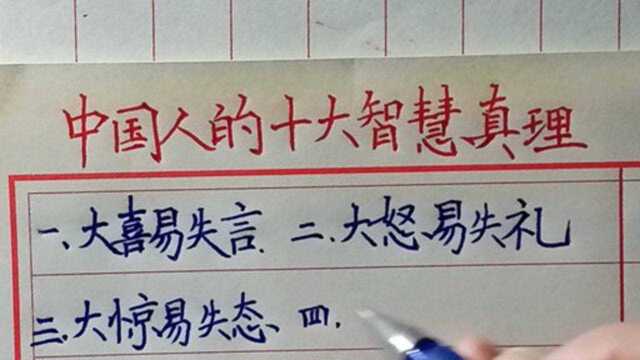 中国人的十大智慧真理
一、大喜易失言. 二.大怒易失礼
三.大惊易失态、四.